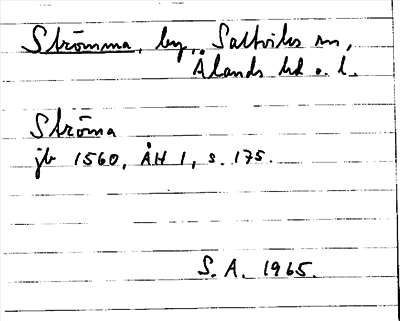 Strömma, by, Saltviks sn,
Ålands hd o. l.
Ströma
jb 1560, ÅH 1, s. 175.
S. A. 1965.